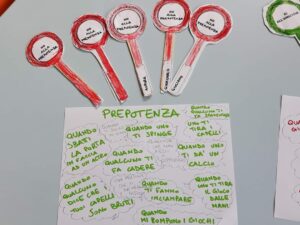 NO
ALLA
PREPOTENZA
NO
ALLA
PREPOTENZA
NO
ALLA
PREPOTENZA
NO
ALLA
PREPOTENZA
NO
ALLA
PREPOTENZA
PREPOTENZA
QUANDO
SBATI
LA PORTA
IN FACCIA
AD UN ALTRO
QUANDO UNO
TI SPINGE
QUANDO
UNO TI
TIRA I
CAPELLI
QUANDO
QUALCUNO TI
FA CADERE
QUANDO
UNO TI
DÀ UN
CALCIO
QUANDO
QUALCUNO
DICE CHE I
TUOI CAPELLI
SONO BRUTTI
QUANDO
TI FANNO
INCIAMPARE
QUANDO
UNO TI TIRA
IL GIOCO
DALLE
MANI
QUANDO
MI ROMPONO I GIOCHI